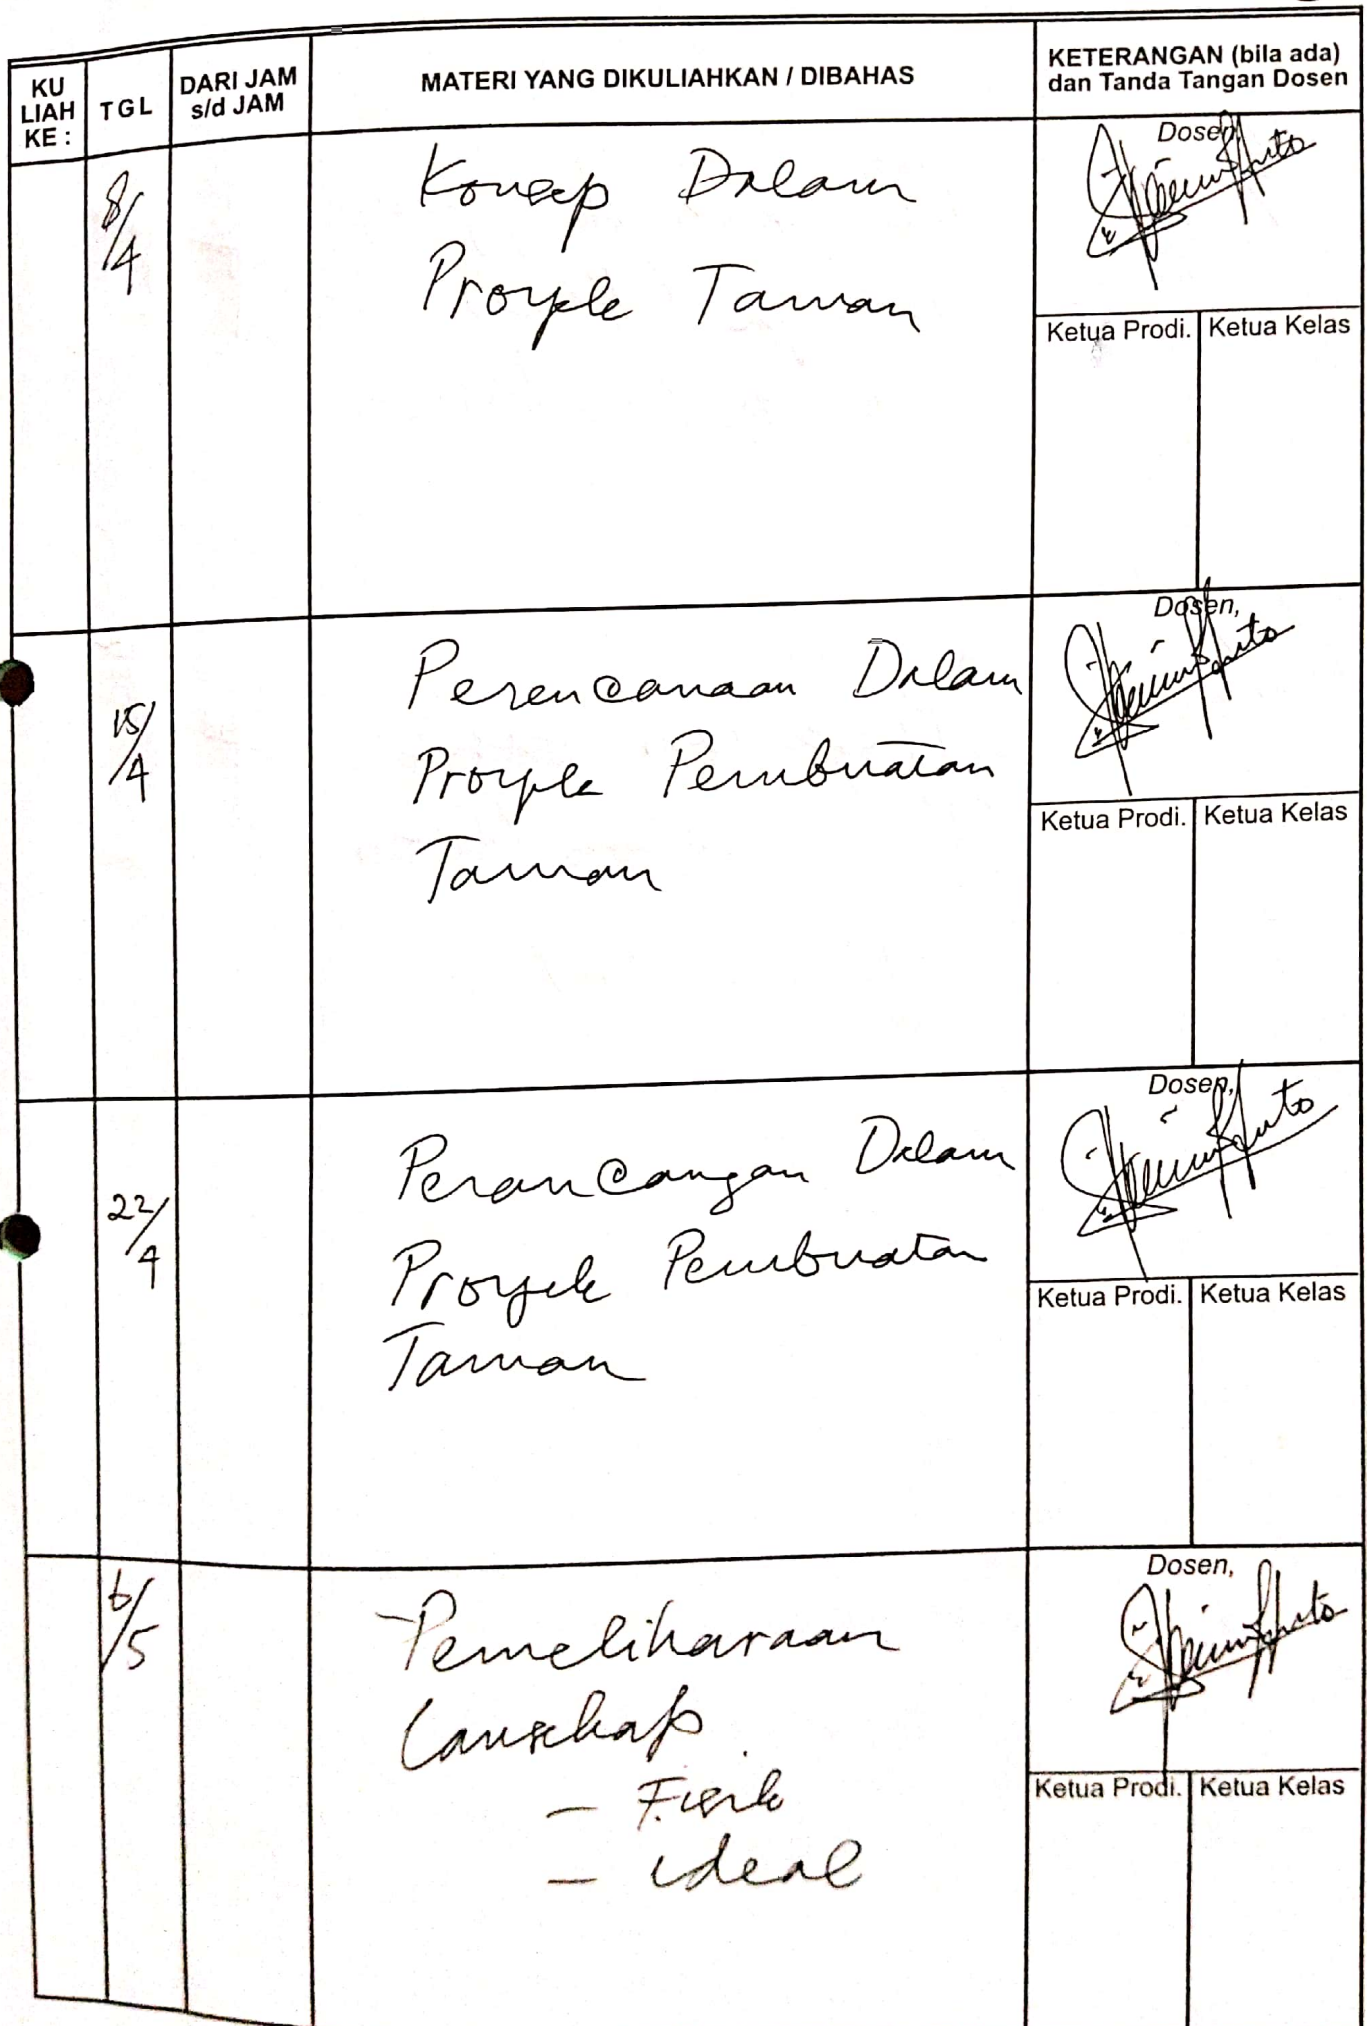 KU LIAH KE :
TGL
DARI JAM s/d JAM
MATERI YANG DIKULIAHKAN / DIBAHAS
KETERANGAN (bila ada) dan Tanda Tangan Dosen
8/4
Konsep Dalam
Proyek Taman
Dosen,
Ketua Prodi.
Ketua Kelas
15/4
Perencanaan Dalam
Proyek Pembuatan
Taman
Dosen,
Ketua Prodi.
Ketua Kelas
22/4
Perancangan Dalam
Proyek Pembuatan
Taman
Dosen,
Ketua Prodi.
Ketua Kelas
6/5
Pemeliharaan
Lanskap
- Fisik
- ideal
Dosen,
Ketua Prodi.
Ketua Kelas